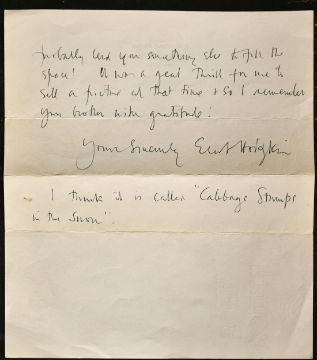 probably lend you something else to fill the
space! It was a great thrill for me to
sell a picture at that time & so I remember
your brother with gratitude!
Yours Sincerely Eliot Hodgkin
I think it is called "Cabbage Stumps
in the Snow".